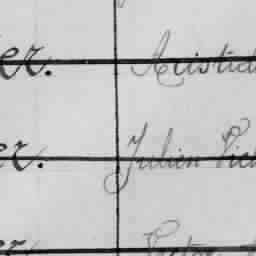 er. Aristid
er. Julien Vict
er